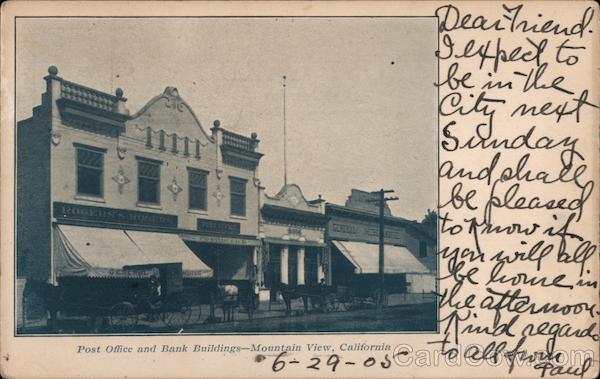 Dear Friend.
I expect to
be in the
City next
Sunday
and shall
be pleased
to know if
you will all
be home in
the afternoon
Kind regards
to all from
Paul
ROGERS & ROGERS
POST OFFICE
Post Office and Bank Buildings—Mountain View, California
6-29-05
CardCow.com